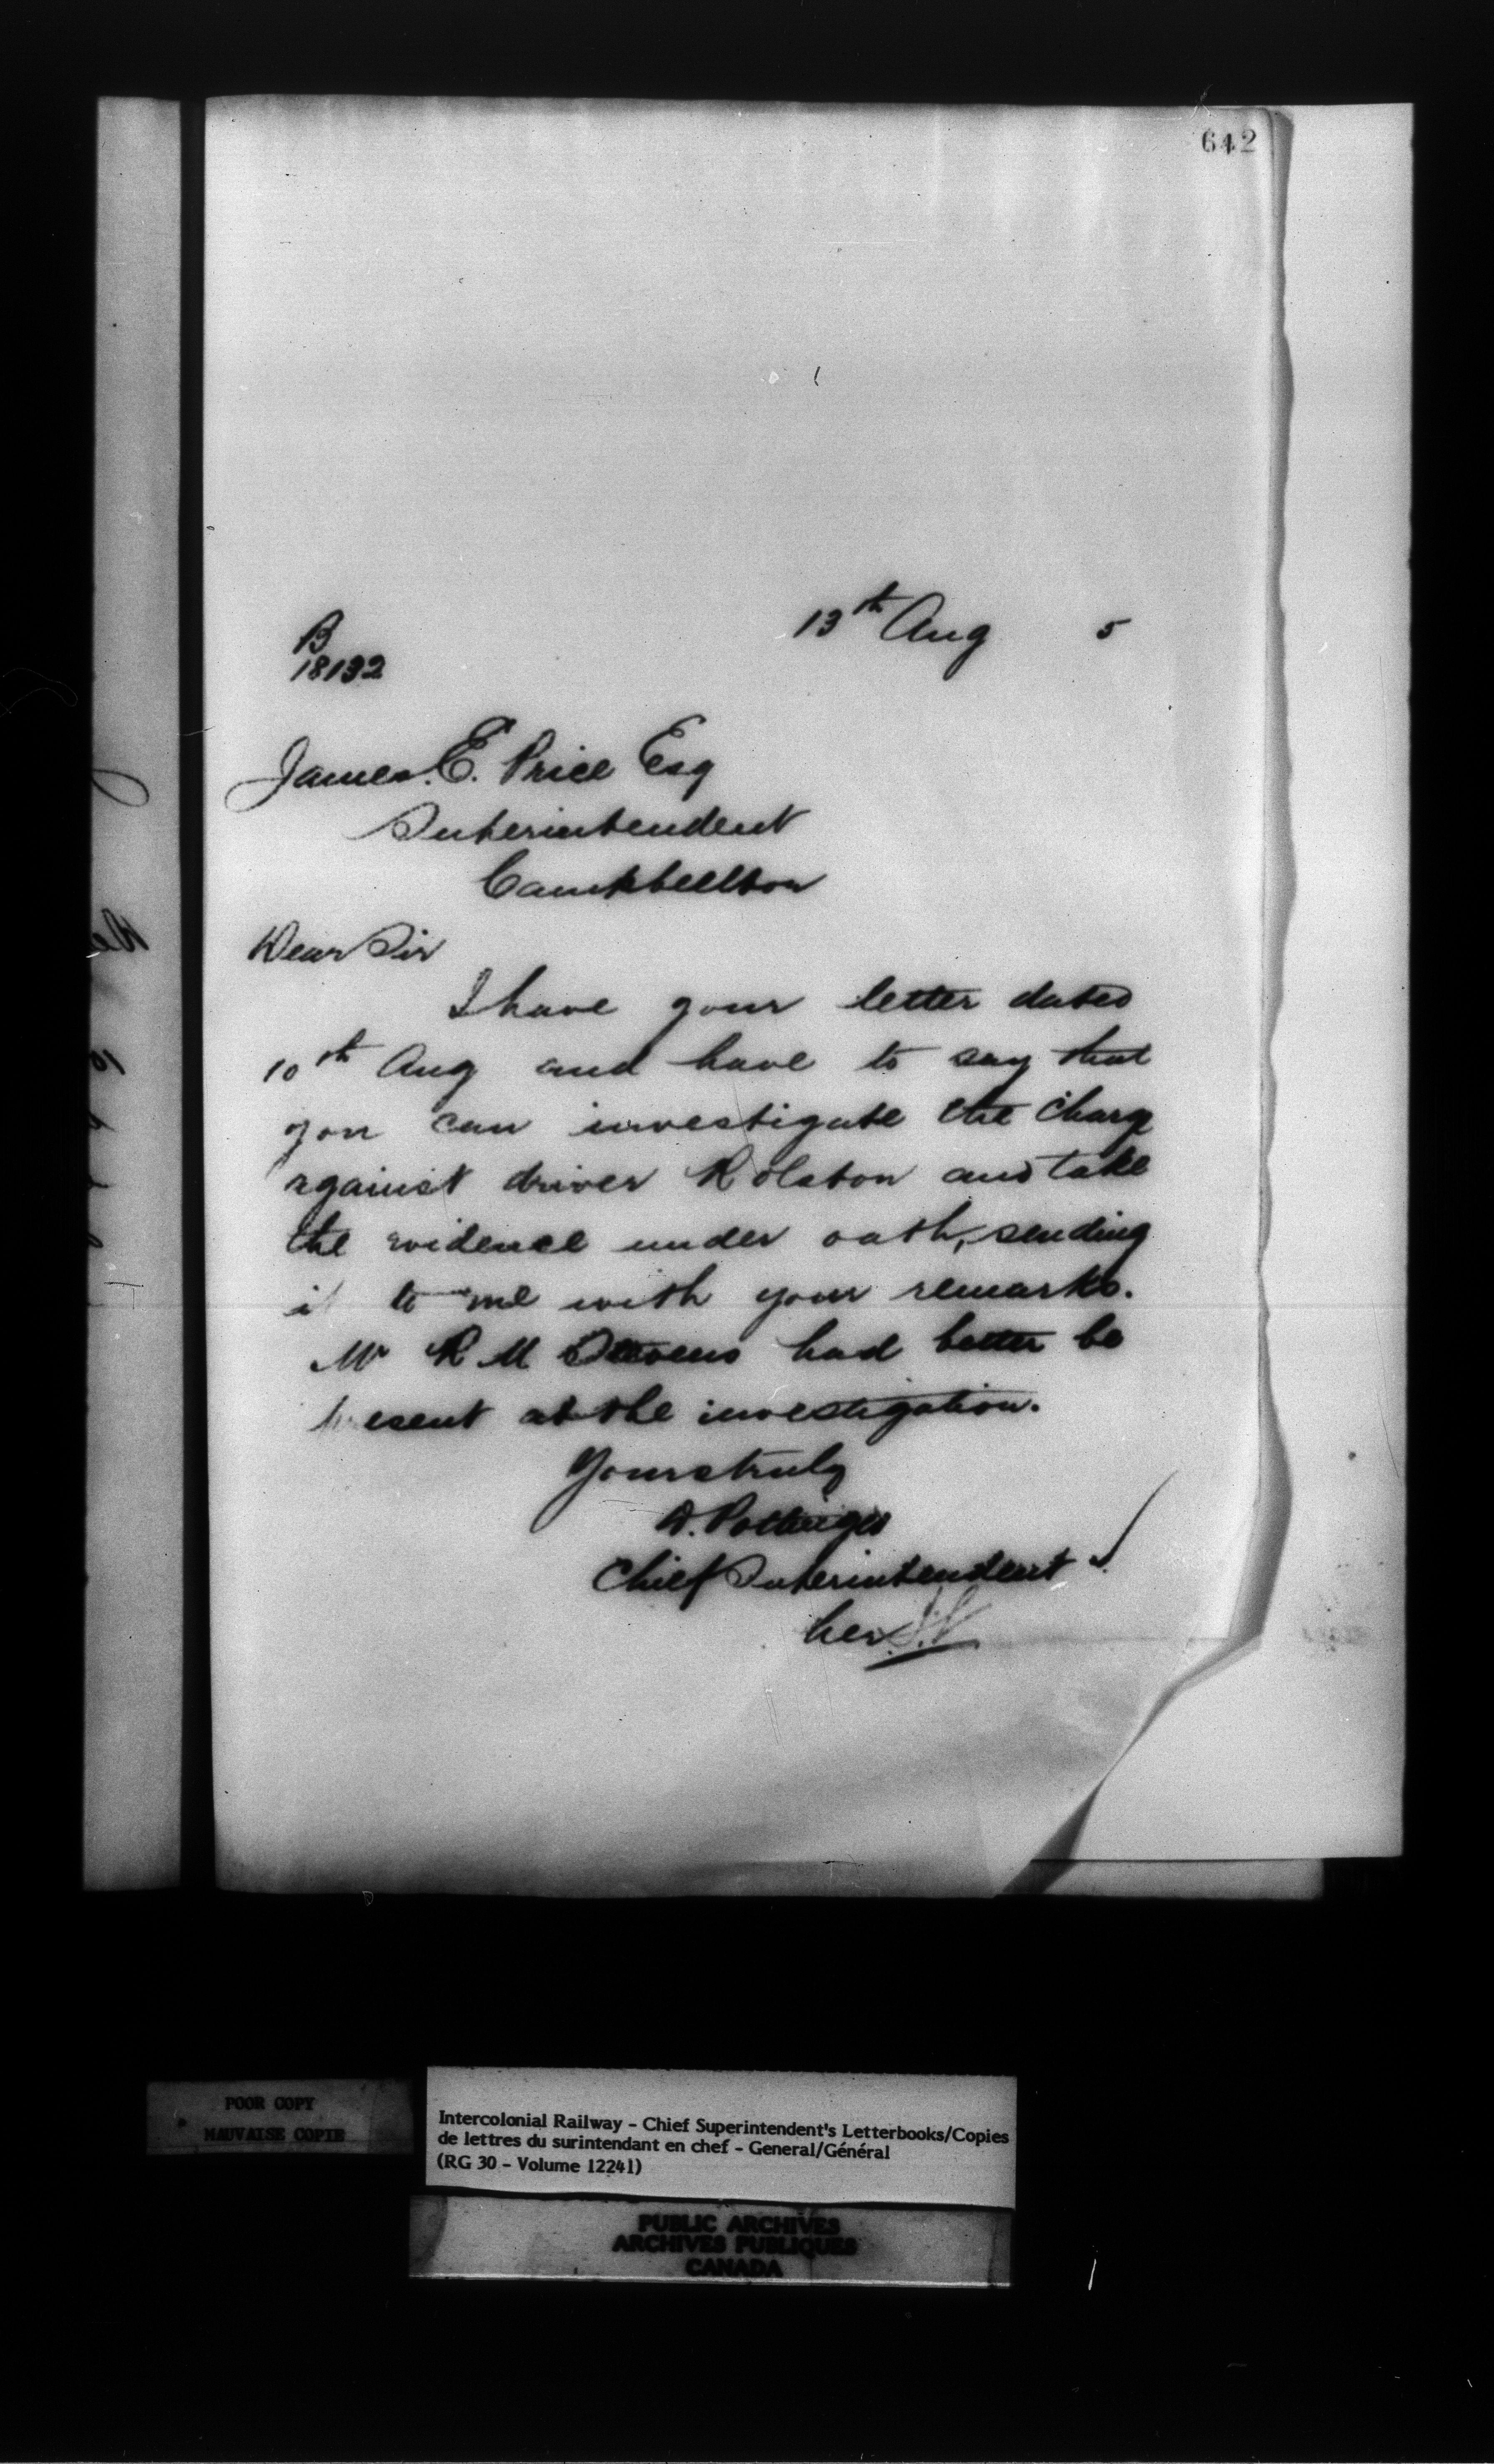 642
13th Aug 5
B
18132
James. E. Price Esq
Superintendent
Campbellton
Dear Sir
I have your letter dated
10th Aug and have to say that
you can investigate the charge
against driver Rolston and take
the evidence under oath, sending
it to me with your remarks.
Mr R M Stevens had better be
present at the investigation.
Yours truly
D. Pottinger
Chief Superintendent
Per
POOR COPY
MAUVAISE COPIE
Intercolonial Railway - Chief Superintendent's Letterbooks/Copies
de lettres du surintendant en chef - General/Général
(RG 30 - Volume 12241)
PUBLIC ARCHIVES
ARCHIVES PUBLIQUES
CANADA